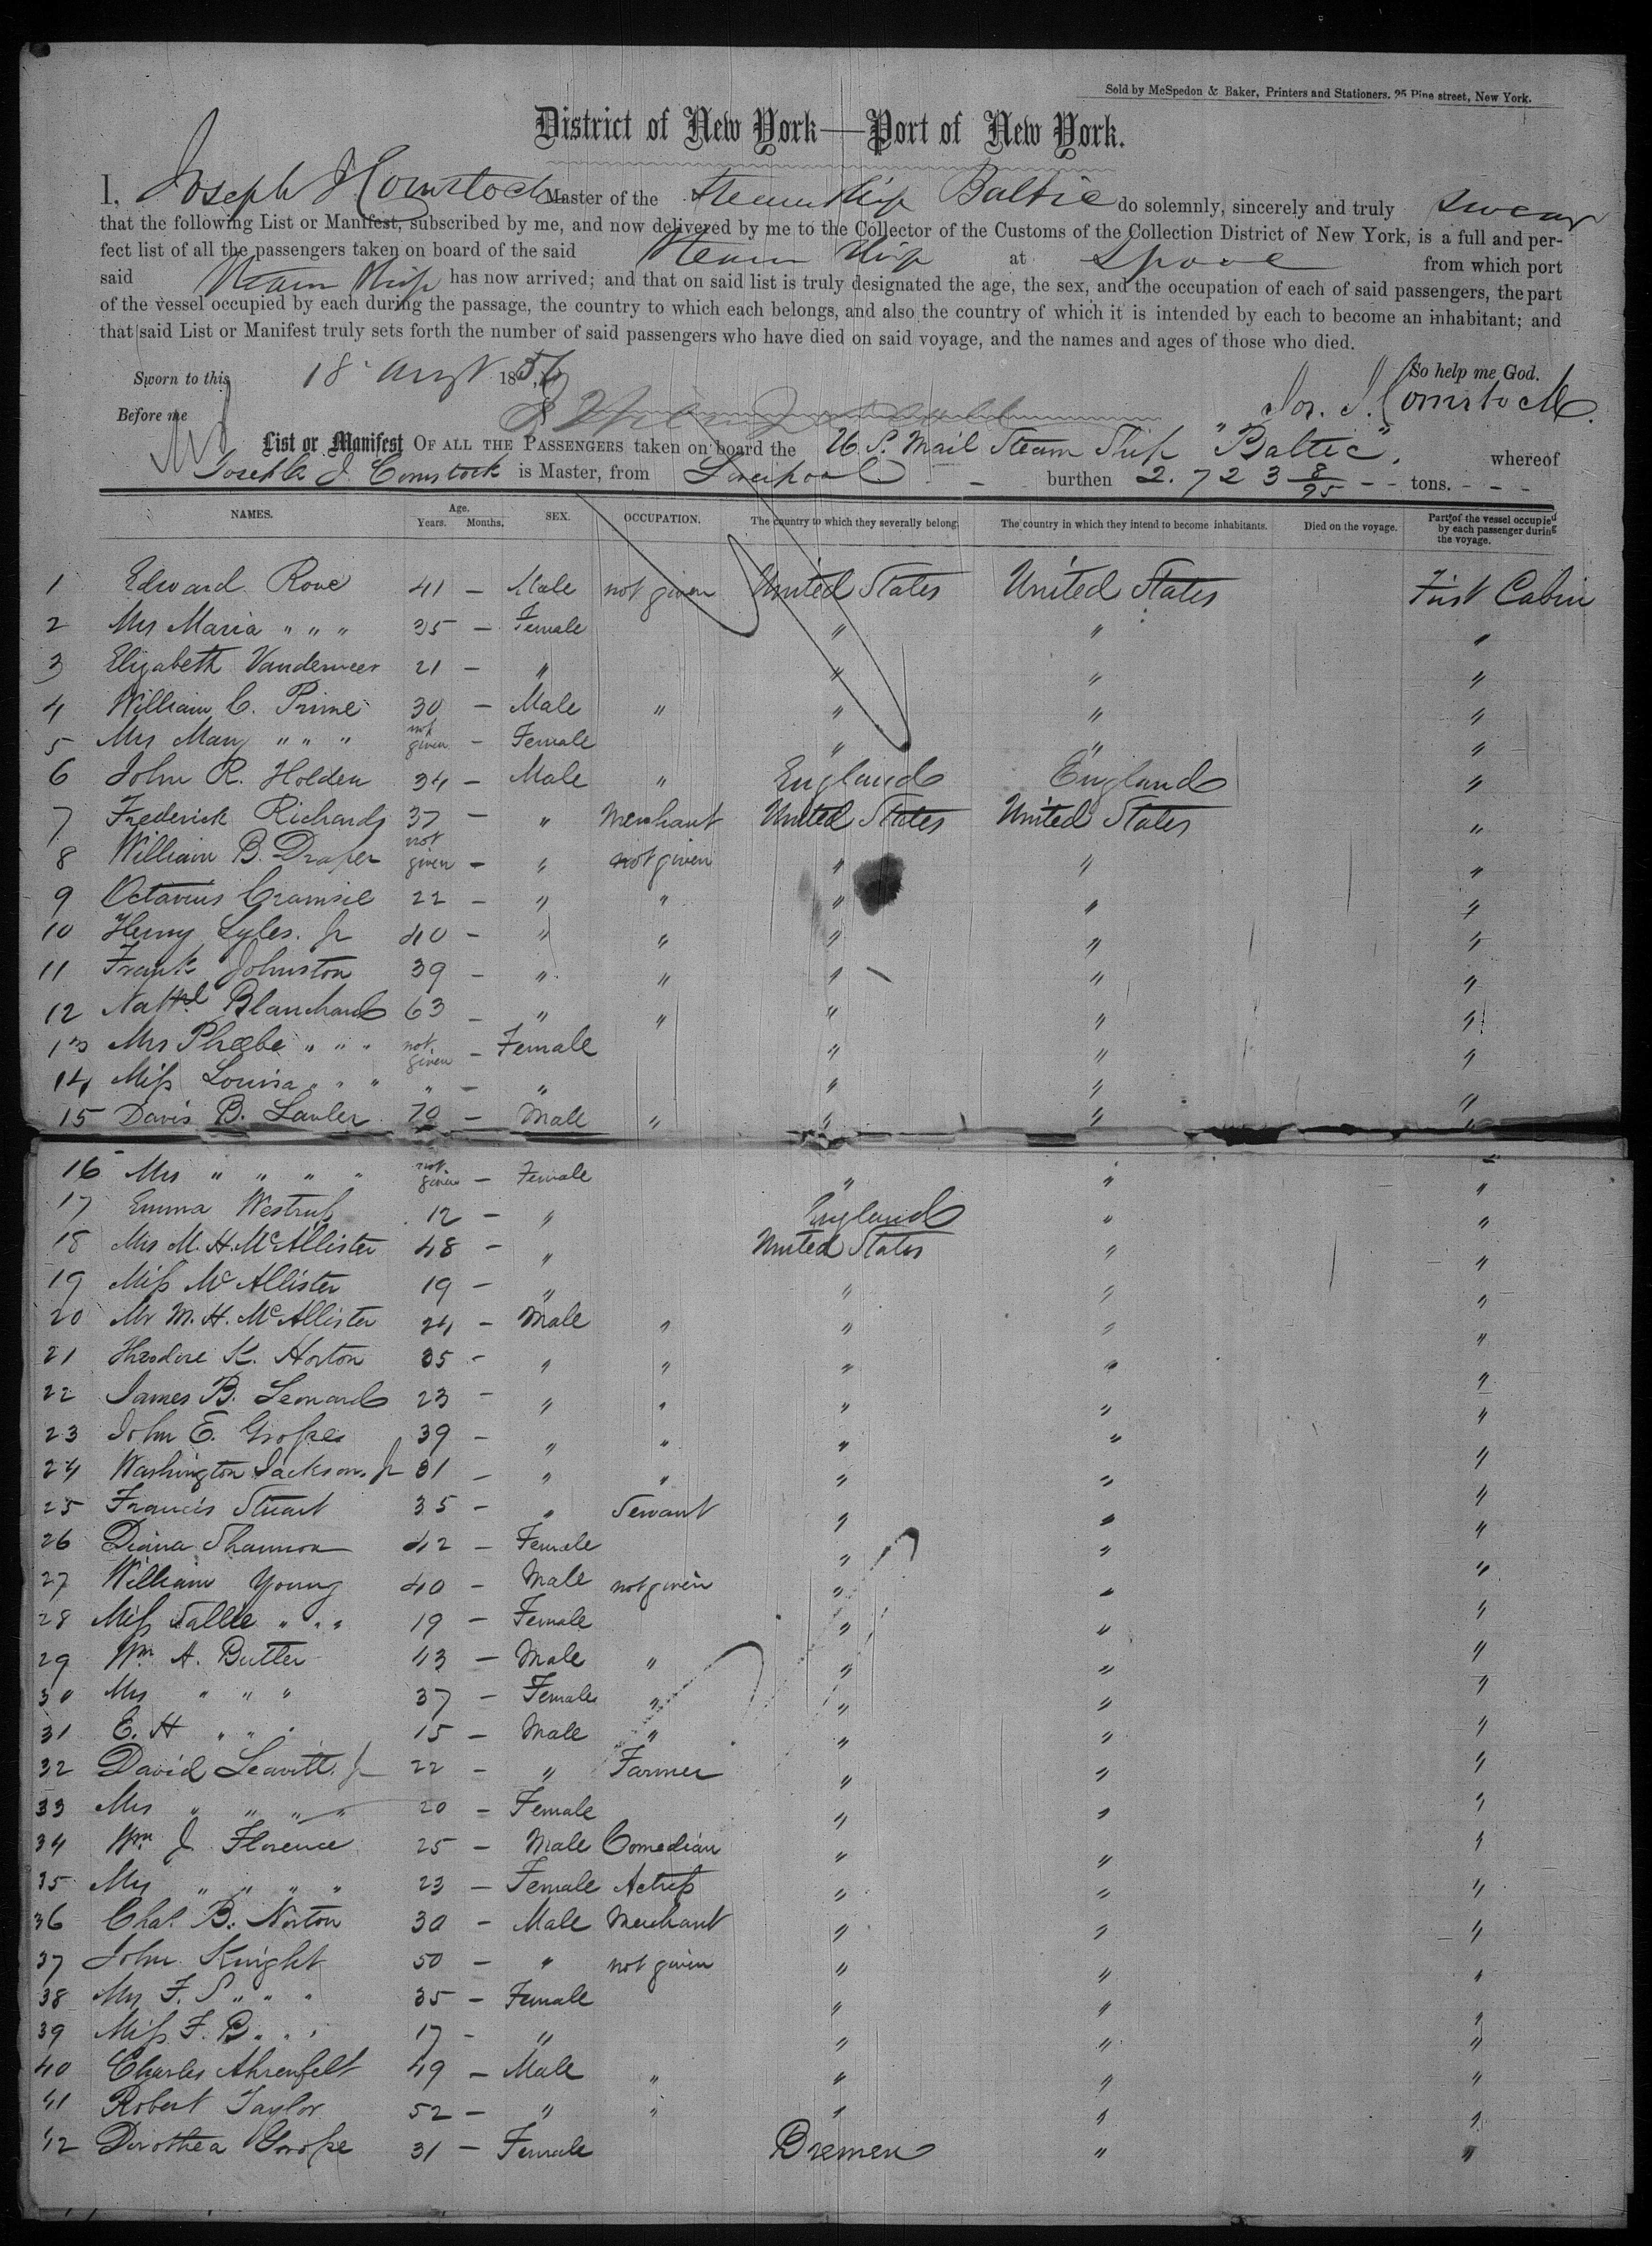 Sold by McSpedon & Baker, Printers and Stationers, 25 Pine street, New York.
District of New York—Port of New York.
I, Joseph J Comstock Master of the Steam Ship Baltic do solemnly, sincerely and truly swear
that the following List or Manifest, subscribed by me, and now delivered by me to the Collector of the Customs of the Collection District of New York, is a full and per-
fect list of all the passengers taken on board of the said Steam Ship at Lpool from which port
said Steam Ship has now arrived; and that on said list is truly designated the age, the sex, and the occupation of each of said passengers, the part
of the vessel occupied by each during the passage, the country to which each belongs, and also the country of which it is intended by each to become an inhabitant; and
that said List or Manifest truly sets forth the number of said passengers who have died on said voyage, and the names and ages of those who died.
Sworn to this 18 Augt 1856 So help me God.
Before me Jos. J. Comstock
List or Manifest OF ALL THE PASSENGERS taken on board the U. S. Mail Steam Ship "Baltic", whereof
Joseph J. Comstock is Master, from Liverpool burthen 2.723 8/95 - - tons. - - -
NAMES. Age. Years. Months. SEX. OCCUPATION. The country to which they severally belong. The country in which they intend to become inhabitants. Died on the voyage. Part of the vessel occupied by each passenger during the voyage.
1 Edward Rowe 41 - Male not given United States United States First Cabin
2 Mrs Maria " " " 35 - Female " " "
3 Elizabeth Vanderveer 21 - " " " "
4 William C. Prime 30 - Male " " " "
5 Mrs Mary " " " not given - Female " " "
6 John R. Holden 34 - Male " England England "
7 Frederick Richards 37 - " Merchant United States United States "
8 William B. Draper not given - " not given " " "
9 Octavius 22 - " " " " "
10 Henry Lyles. Jr 40 - " " " " "
11 Frank Johnston 39 - " " " " "
12 Nathl Blanchard 63 - " " " " "
13 Mrs Phœbe " " " not given - Female " " "
14 Miss Louisa " " " " - " " " "
15 Davis B. Lawler 70 - Male " " " "
16 Mrs " " " " not given - Female " " "
17 Emma Westrup 12 - " England " "
18 Mrs M. H. McAllister 48 - " United States " "
19 Miss McAllister 19 - " " " "
20 Mr M. H. McAllister 24 - Male " " " "
21 Theodore K. Horton 35 - " " " " "
22 James B. Leonard 23 - " " " " "
23 John E. Grosse 39 - " " " " "
24 Washington Jackson Jr 31 - " " " " "
25 Francis Stuart 35 - " Servant " " "
26 Diana Shannon 42 - Female " " "
27 William Young 40 - Male not given " " "
28 Miss Sallie " " " 19 - Female " " "
29 Wm A. Butler 43 - Male " " " "
30 Mrs " " " 37 - Female " " " "
31 E. H " " " 15 - Male " " " "
32 David Leavitt. Jr 22 - " Farmer " " "
33 Mrs " " " " 20 - Female " " "
34 Wm J Florence 25 - Male Comedian " " "
35 Mrs " " " " 23 - Female Actress " " "
36 Chas. B. Norton 30 - Male Merchant " " "
37 John Knight 50 - " not given " " "
38 Mrs F. S " " " 35 - Female " " "
39 Miss F. B " " " 17 - " " " "
40 Charles Ahrenfelt 49 - Male " " " "
41 Robert Taylor 52 - " " " " "
42 Dorothea Grosse 31 - Female Bremen " "